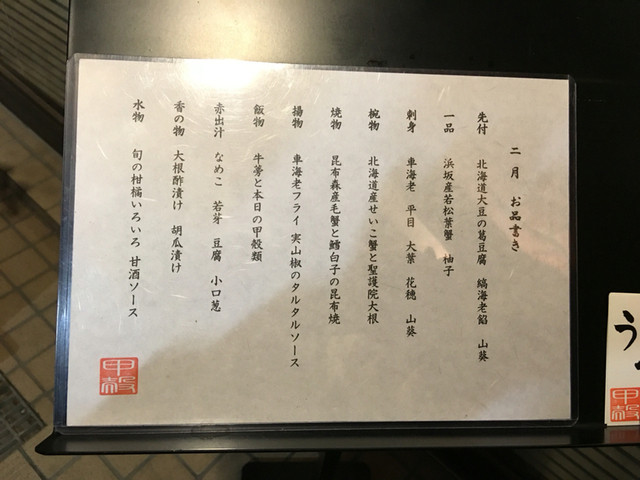 二月 お品書き
先付 北海道大豆の葛豆腐 縞海老餡 山葵
一品 浜坂産若松葉蟹 柚子
刺身 車海老 平目 大葉 花穂 山葵
椀物 北海道産せいこ蟹と聖護院大根
焼物 昆布森産毛蟹と鱈白子の昆布焼
揚物 車海老フライ 実山椒のタルタルソース
飯物 牛蒡と本日の甲殻類
赤出汁 なめこ 若芽 豆腐 小口葱
香の物 大根酢漬け 胡瓜漬け
水物 旬の柑橘いろいろ 甘酒ソース
甲殻
う
甲殻